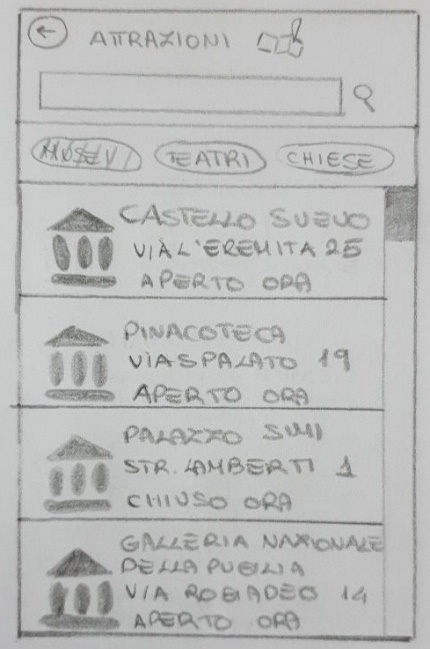 ATTRAZIONI
MUSEI
TEATRI
CHIESE
CASTELLO SVEVO
VIA L'EREMITA 25
APERTO ORA
PINACOTECA
VIA SPALATO 19
APERTO ORA
PALAZZO SIMI
STR. LAMBERTI 1
CHIUSO ORA
GALLERIA NAZIONALE
DELLA PUGLIA
VIA ROGADEO 14
APERTO ORA